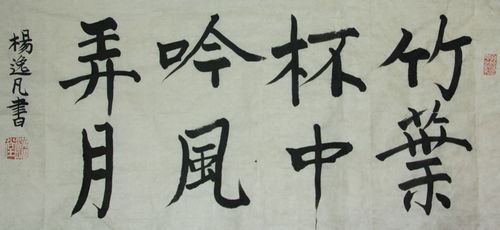 竹葉
杯中
吟風
弄月
楊逸凡書